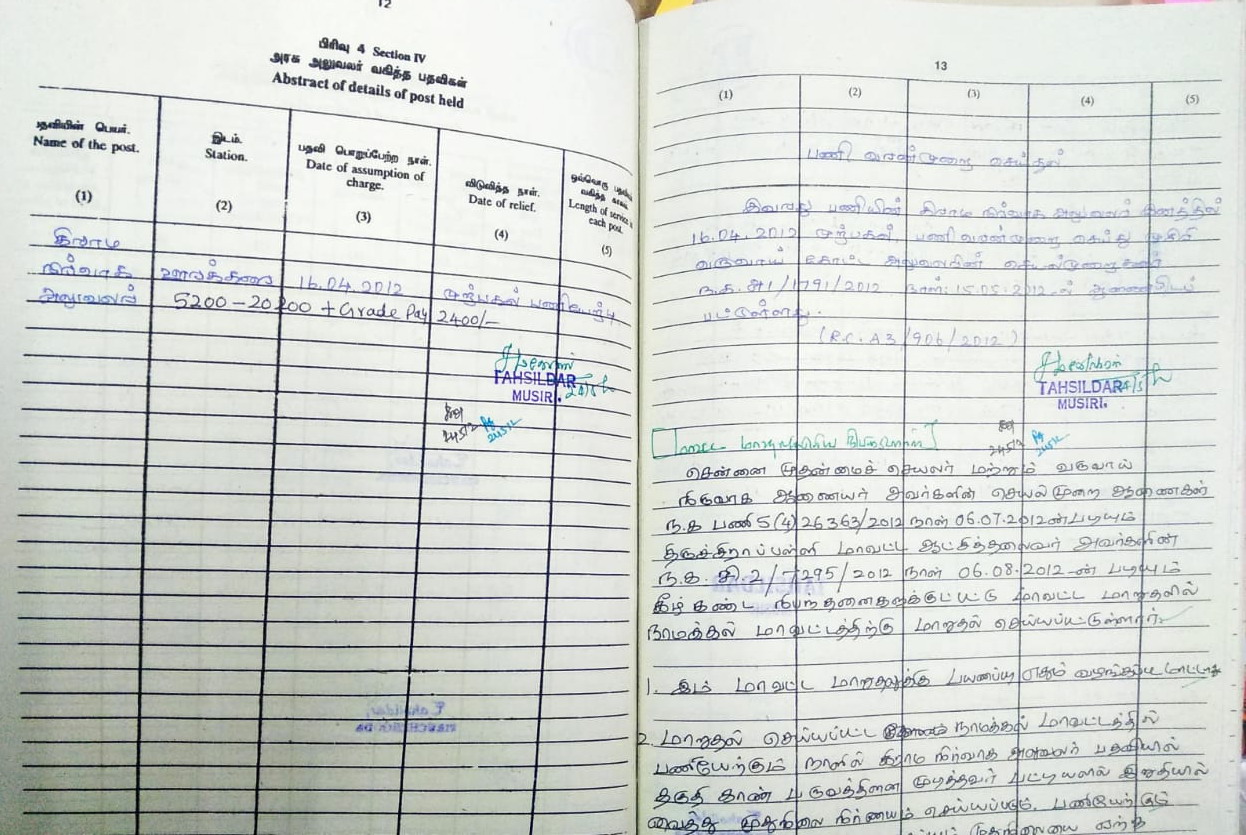 12
பிரிவு 4 Section IV
அரசு அலுவலர் வகித்த பதவிகள்
Abstract of details of post held
பதவியின் பெயர்.
Name of the post.
(1)
இடம்.
Station.
(2)
பதவி பொறுப்பேற்ற நாள்.
Date of assumption of
charge.
(3)
விடுவித்த நாள்.
Date of relief.
(4)
ஒவ்வொரு
வகித்த
Length of service
each post.
(5)
கிராம
நிர்வாக 16.04.2012 முற்பகல்
அலுவலர் 5200-20200 + Grade Pay 2400/-
TAHSILDAR
MUSIRI.
24512
24512
13
(1) (2) (3) (4) (5)
பணி வரன்முறை செய்தல்.
இவரது பணியினை கிராம நிர்வாக அலுவலர்
16.04.2012 முற்பகல், பணிவரன்முறை செய்து முசிறி
வருவாய் கோட்ட அலுவலரின் செயல்முறைகள்
ந.க.அ1/1791/2012 நாள்: 15.05.2012-ல் ஆணையிடப்
பட்டுள்ளது.
(R.C.A3/906/2012)
TAHSILDAR
MUSIRI.
24512
24512
சென்னை முதன்மைச் செயலர் மற்றும் வருவாய்
நிருவாக ஆணையர் அவர்களின் செயல்முறை ஆணைகள்
ந.க பணி 5(4) 26363/2012 நாள் 06.07.2012ன் படியும்
திருச்சிராப்பள்ளி மாவட்ட ஆட்சித்தலைவர் அவர்களின்
ந.க 2/7295/2012 நாள் 06.08.2012-ன் படியும்
கீழ்கண்ட நிபந்தனைகளுக்குட்பட்டு மாவட்ட மாறுதலில்
நாமக்கல் மாவட்டத்திற்கு மாறுதல் செய்யப்பட்டுள்ளார்.
1. இம் மாவட்ட மாறுதலுக்கு பயணப்படி ஏதும் வழங்கப்பட மாட்டாது
2. மாறுதல் செய்யப்பட்ட நாமக்கல் மாவட்டத்தில்
பணியேற்கும் நாளில் கிராம நிர்வாக அலுவலர் பதவியில்
தகுதி காண் பருவத்தினை முடித்தவர் பட்டியலில் இறுதியில்
வைத்து முதுநிலை நிர்ணயம் செய்யப்படும். பணியேற்கும்